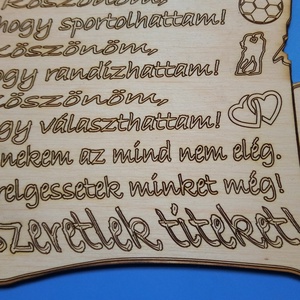 Köszönöm,
hogy sportolhattam!
Köszönöm,
hogy randizhattam!
Köszönöm,
hogy választhattam!
nekem az mind nem elég.
szeretlek titeket!